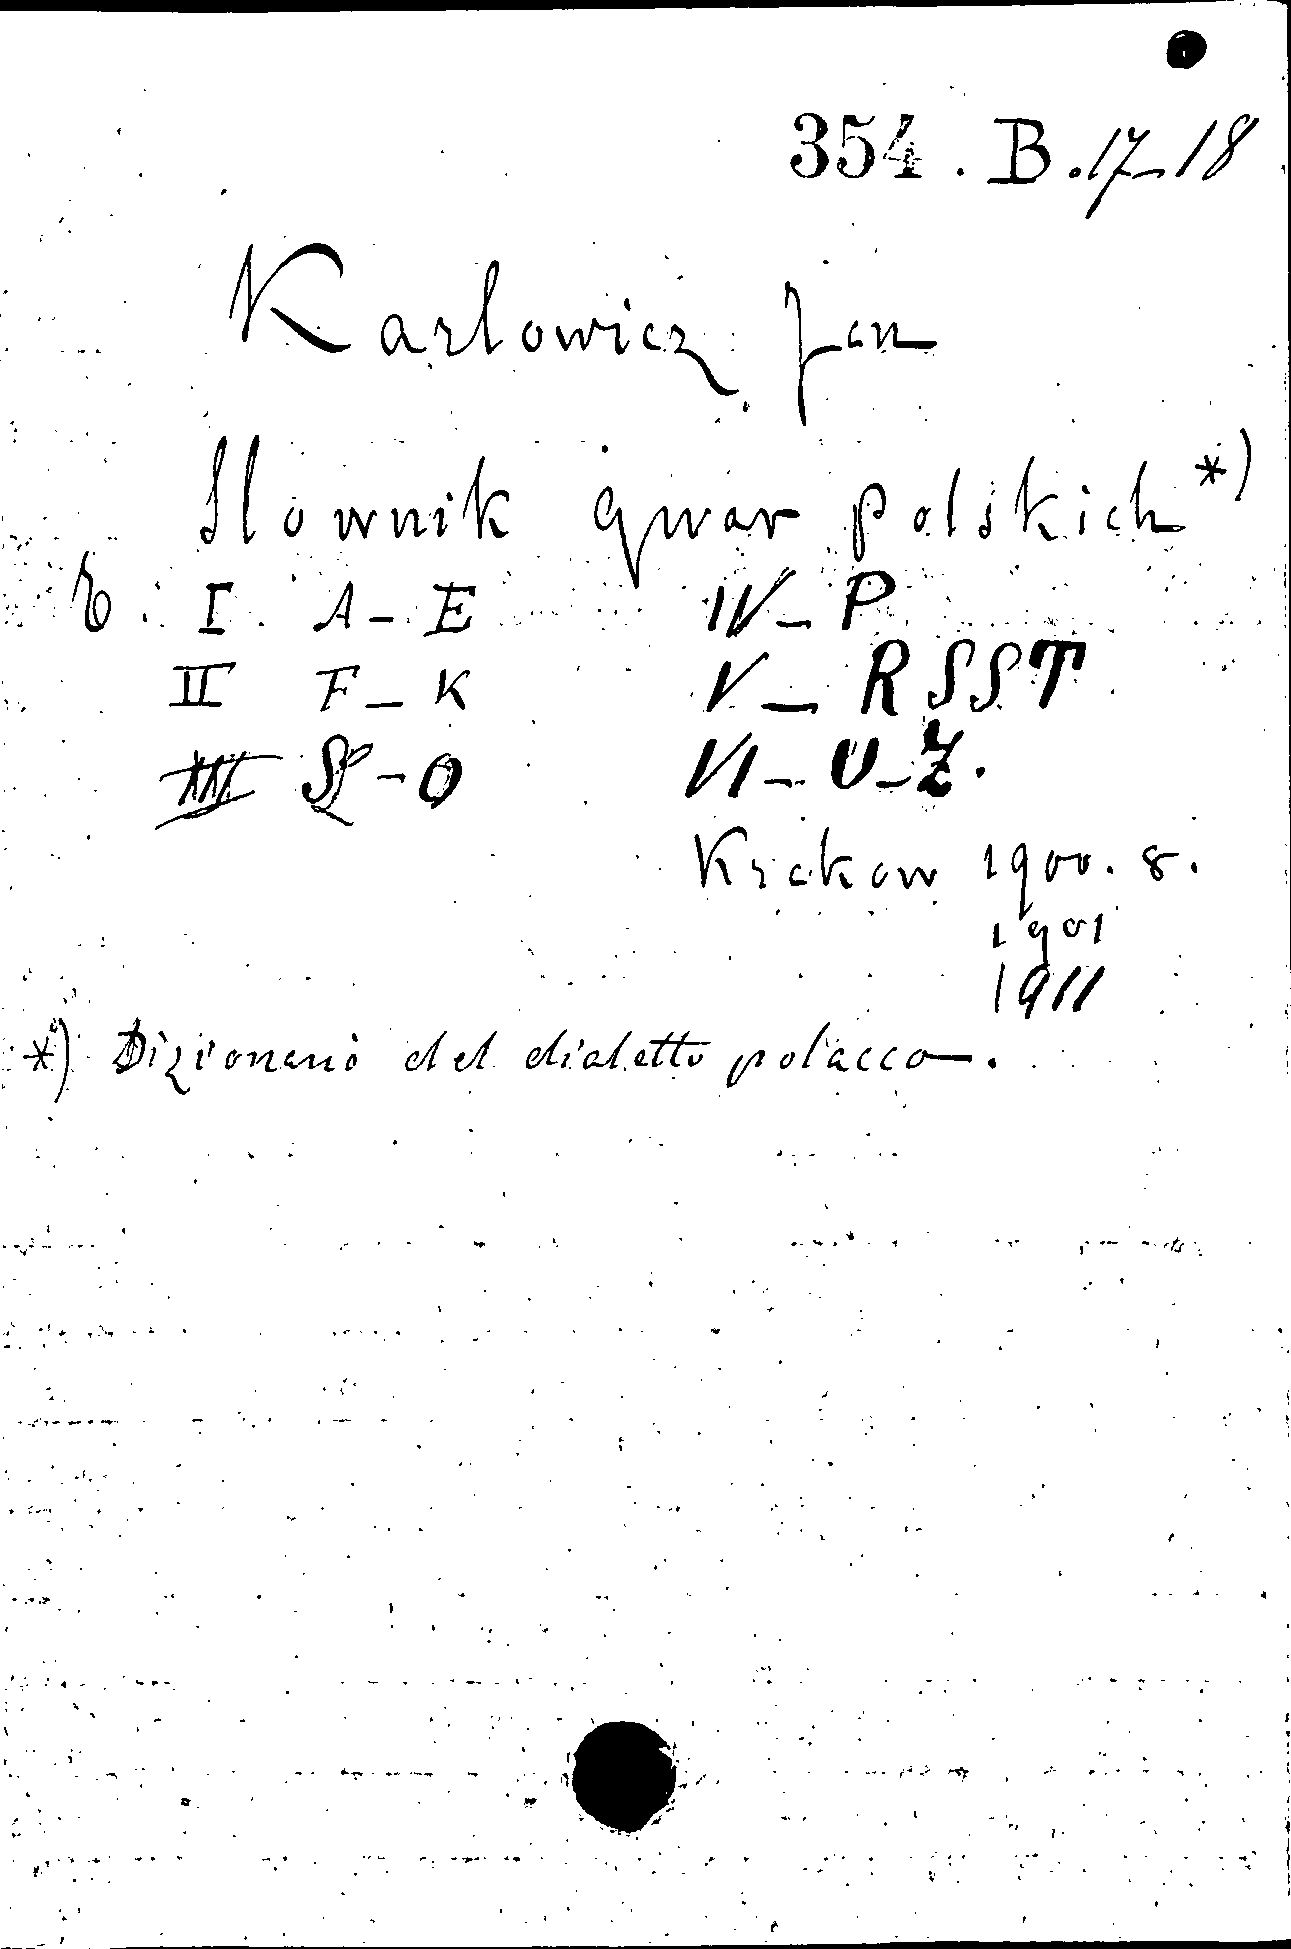 354. B. 17-18
Karlowicz Jan
Slownik gwar polskich *)
t. I. A - E IV - P
II F - K V - R S Ś T
III L - O VI - U - Z.
Krakow 1900. 8.
1901
1911
*) Dizionario del dialetto polacco.